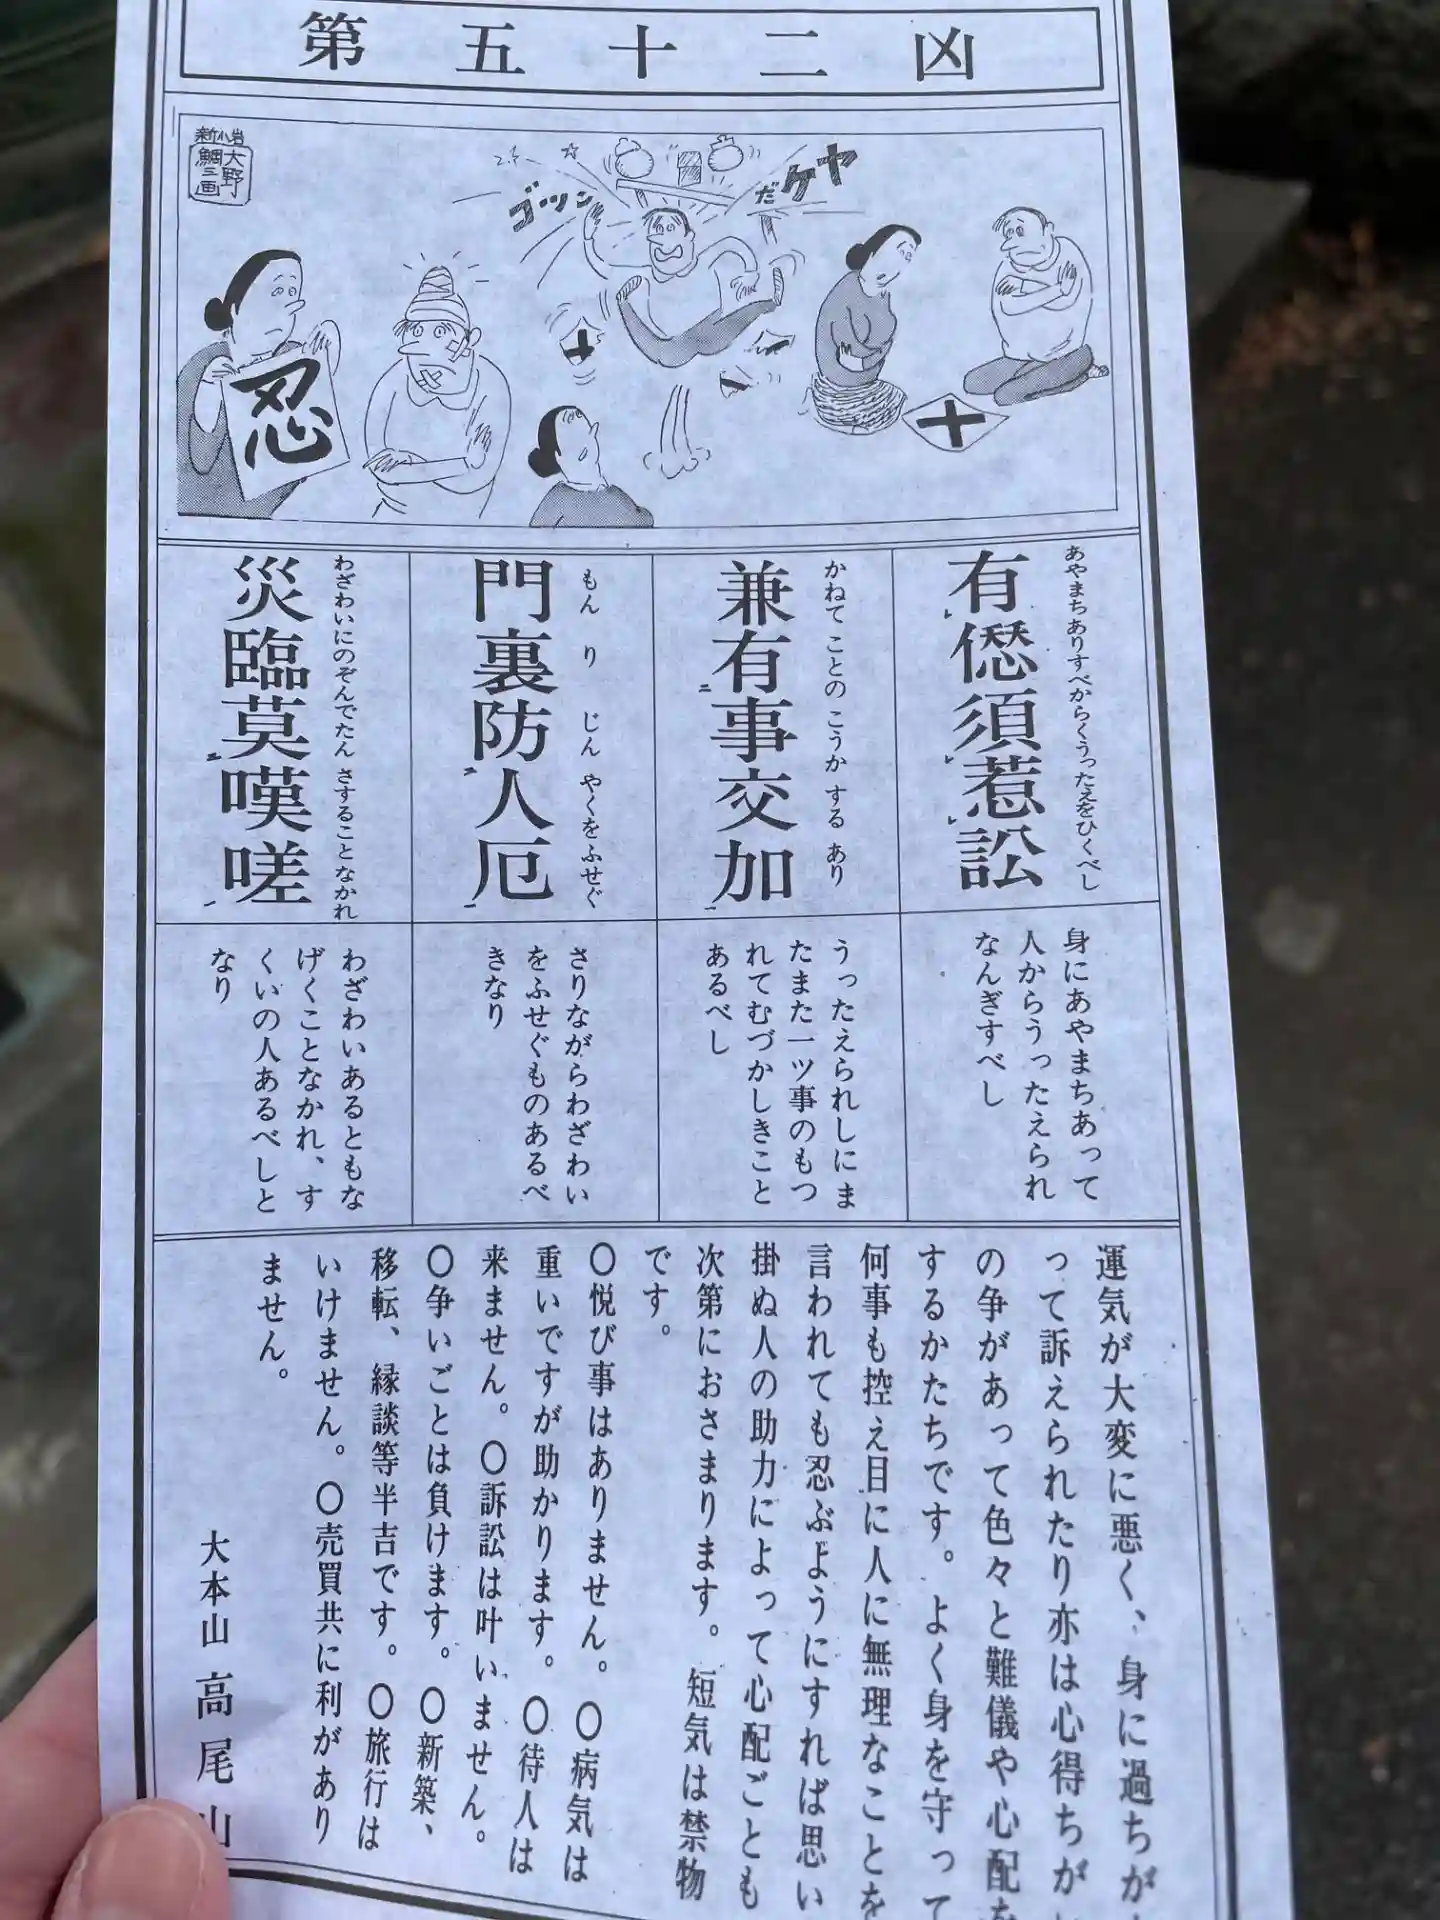 第五十二凶
新小岩
大野
鯛三画
ゴツン
だケヤ
十
忍
十
あやまちありすべからくうったえをひくべし
有僁須惹訟
かねてことのこうかするあり
兼有事交加
もんりじんやくをふせぐ
門裏防人厄
わざわいにのぞんでたんさすることなかれ
災臨莫嘆嗟
身にあやまちあって
人からうったえられ
なんぎすべし
うったえられしにま
たまた一ツ事のもつ
れてむづかしきこと
あるべし
さりながらわざわい
をふせぐものあるべ
きなり
わざわいあるともな
げくことなかれ、す
くいの人あるべしと
なり
運気が大変に悪く、身に過ちが
って訴えられたり亦は心得ちが
の争があって色々と難儀や心配を
するかたちです。よく身を守って
何事も控え目に人に無理なことを
言われても忍ぶようにすれば思い
掛ぬ人の助力によって心配ごとも
次第におさまります。短気は禁物
です。
〇悦び事はありません。〇病気は
重いですが助かります。〇待人は
来ません。〇訴訟は叶いません。
〇争いごとは負けます。〇新築、
移転、縁談等半吉です。〇旅行は
いけません。〇売買共に利があり
ません。
大本山 高尾山